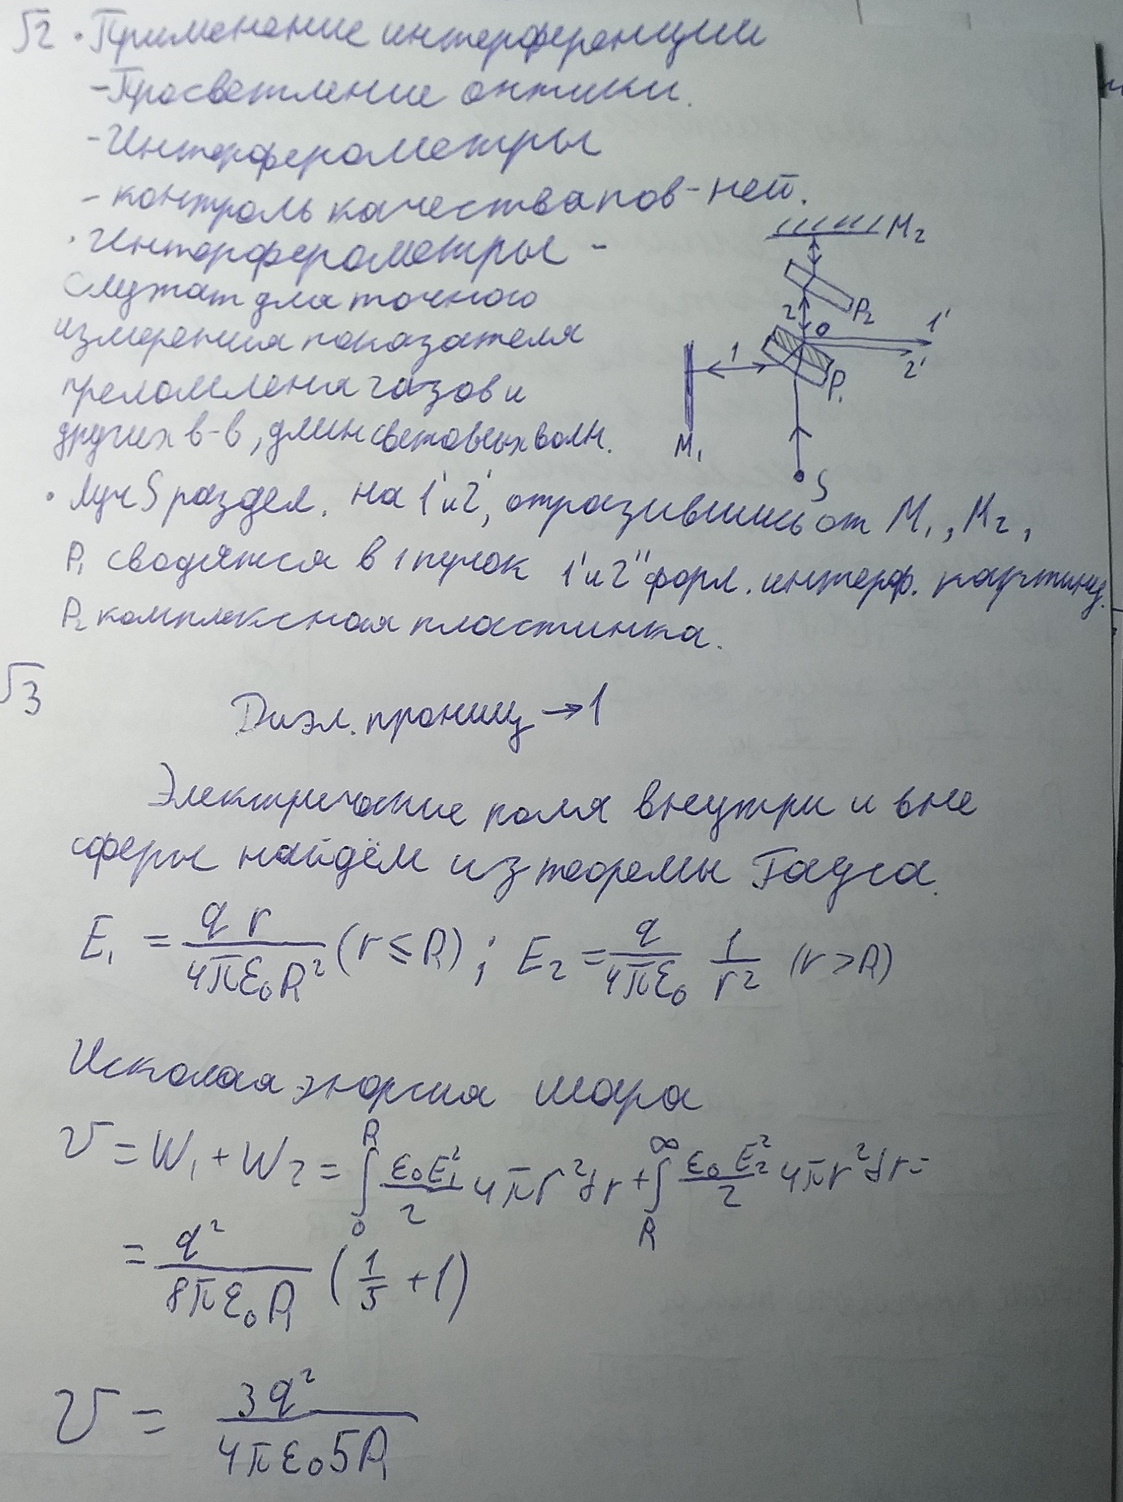 √2 · Применение интерференции
- Просветление оптики.
- Интерферометры
- контроль качества пов-ней.
· Интерферометры -
служат для точного
измерения показателя
преломления газов и
других в-в, длин световых волн.
M₂
P₂
2
O
1'
2'
1
P₁
M₁
S
· Луч S раздел. на 1' и 2', отразившись от M₁, M₂,
P₁ сводятся в 1 пучок 1' и 2" форм. интерф. картину.
P₂ комплексная пластинка.
√3
Диэл. прониц → 1
Электрические поля внутри и вне
сферы найдём из теоремы Гаусса.
E₁ = q r / 4πε₀R² (r ≤ R); E₂ = q / 4πε₀ 1 / r² (r > R)
Искомая энергия шара
U = W₁ + W₂ = ∫₀ᴿ ε₀E₁² / 2 4πr²dr + ∫ᴿ^∞ ε₀E₂² / 2 4πr²dr =
= q² / 8πε₀R (1/5 + 1)
U = 3q² / 4πε₀5R